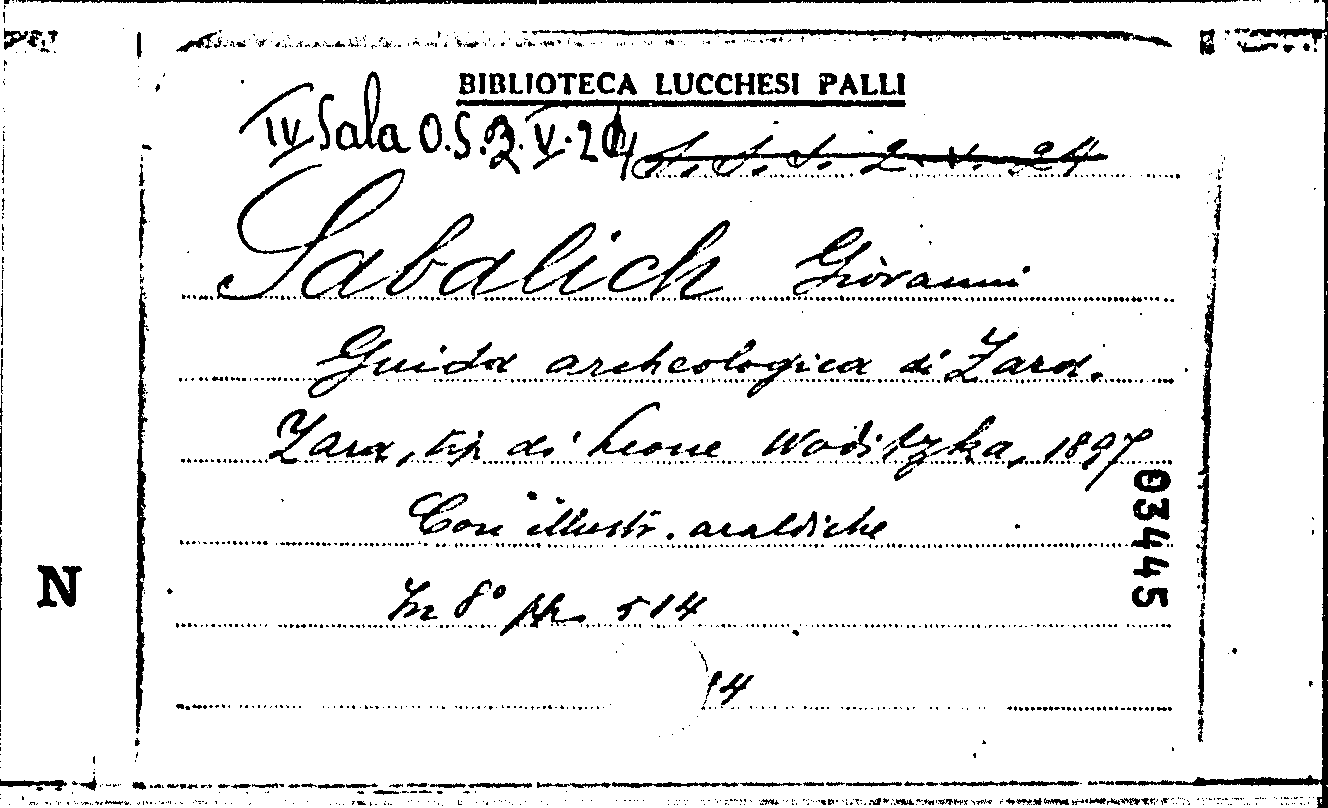 BIBLIOTECA LUCCHESI PALLI
IV Sala O.S.2.V.24
S. S. S. 2. V. 24
Sabalich Giovanni
Guida archeologica di Zara.
Zara, tip di Leone Woditzka, 1897
Con illustr. araldiche
In 8° pp. 514
14
03445
N